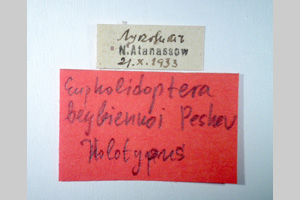 N. Atanassow
21.X.1933
Eupholidoptera
beybienkoi Peshev
Holotypus